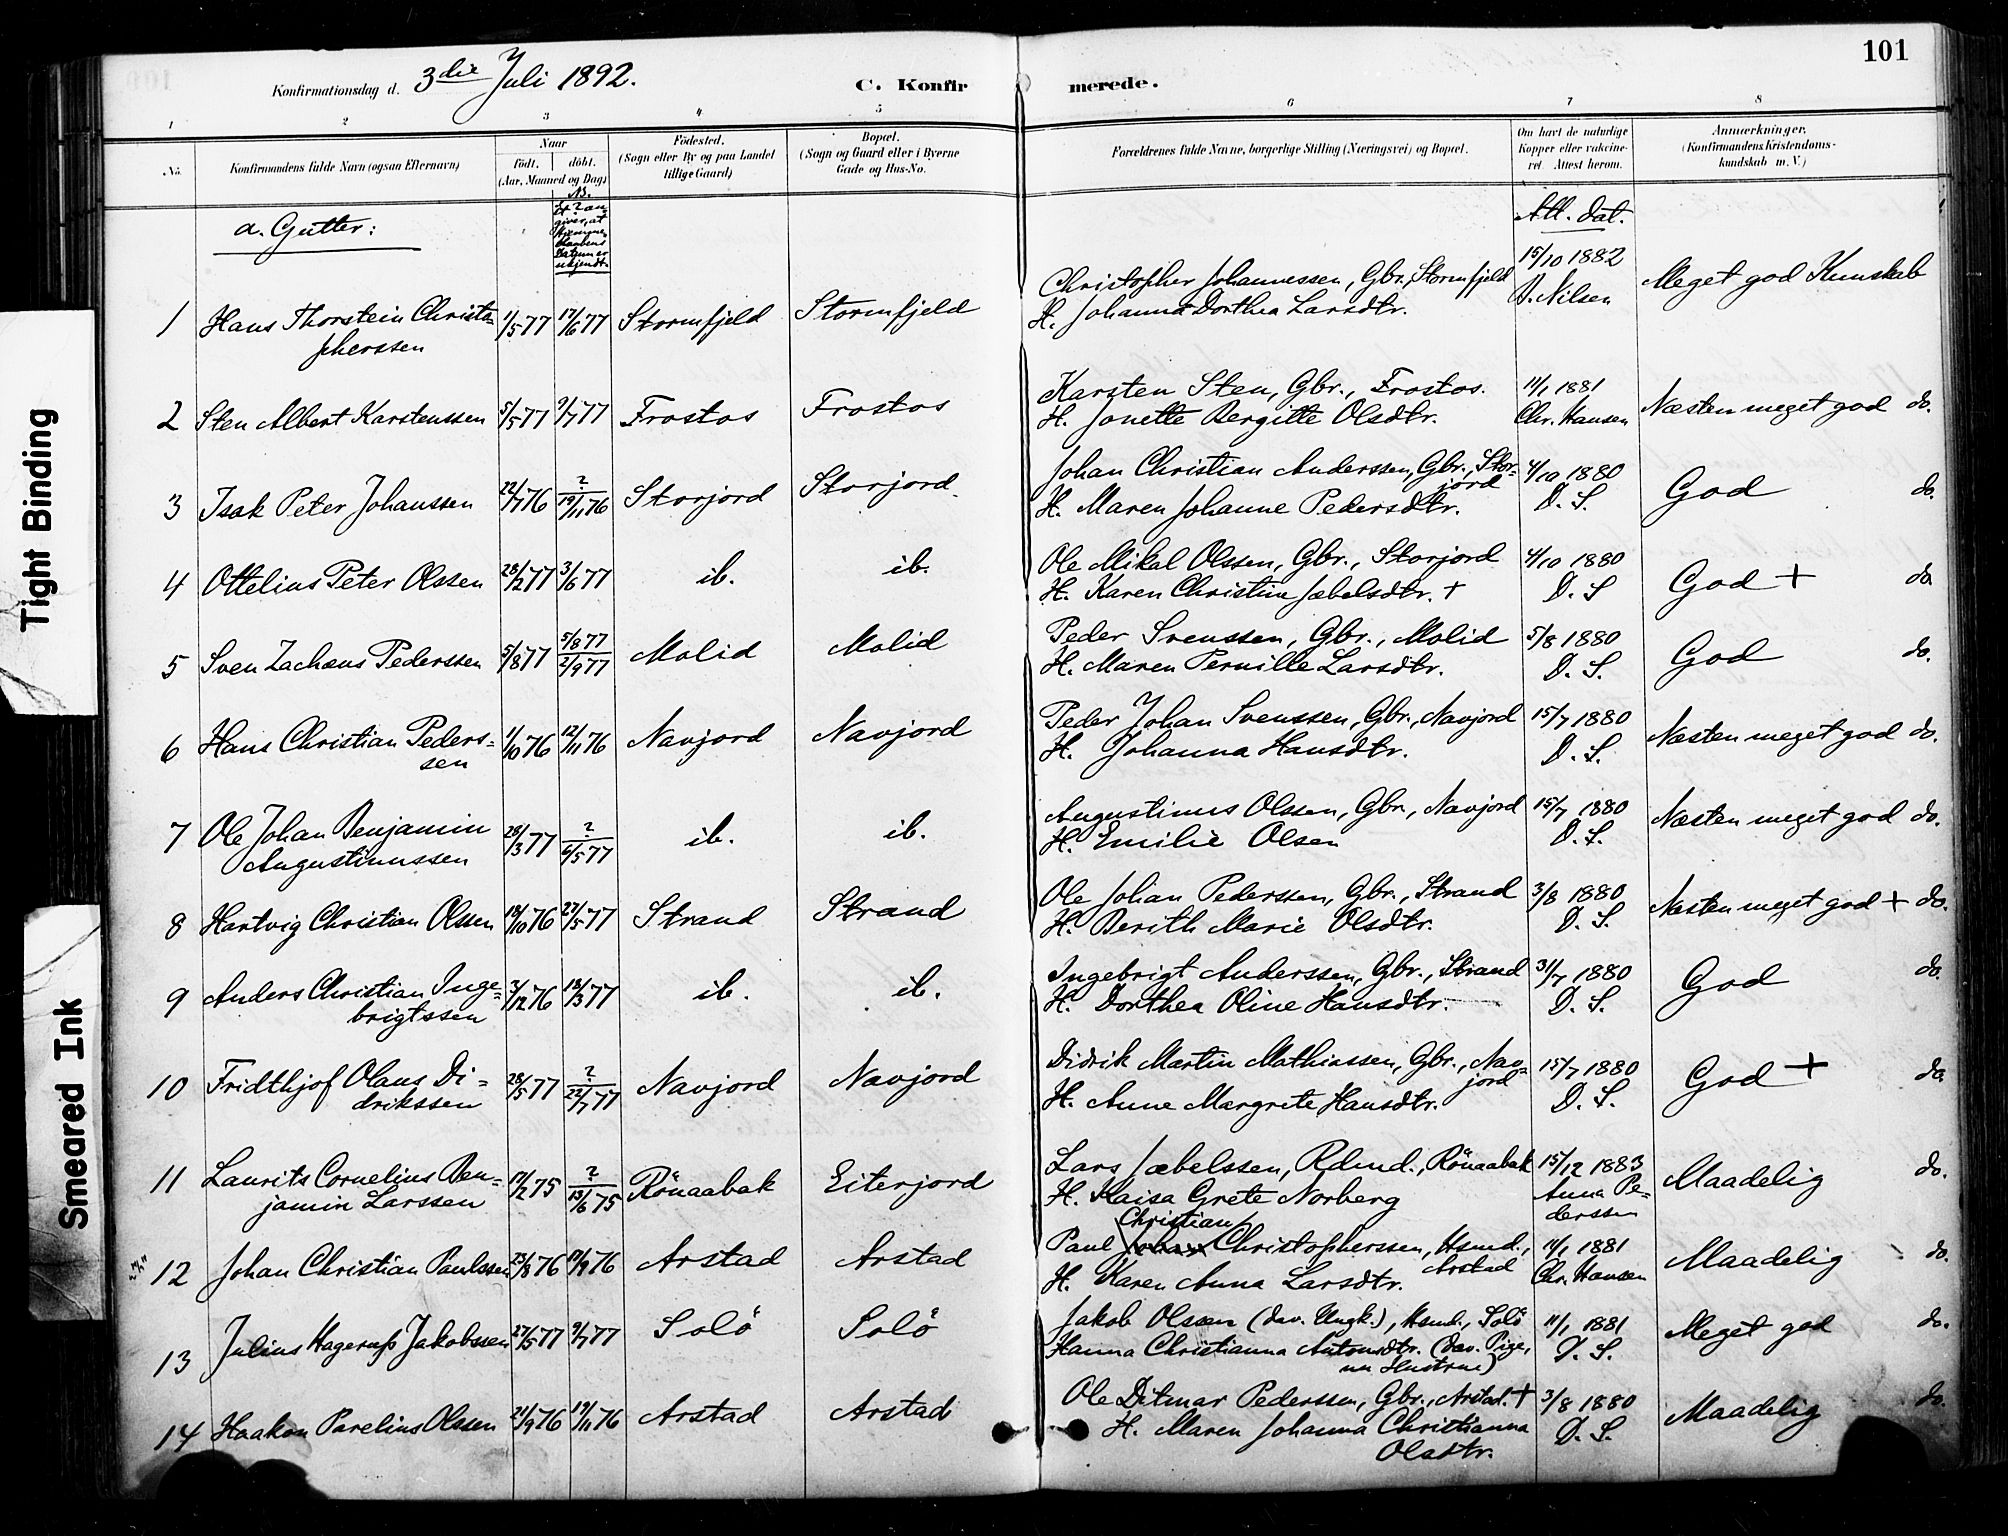 101
Konfirmationsdag d. 3die Juli 1892. C. Konfir merede.
1 2 3 4 5 6 7 8
No. Konfirmandens fulde Navn (ogsaa Efternavn) Naar födt. döbt. (Aar, Maaned og Dag) Födested. (Sogn eller By og paa Landet tillige Gaard) Bopæl. (Sogn og Gaard eller i Byerne Gade og Hus-No. Forældrenes fulde Navne, borgerlige Stilling (Næringsvei) og Bopæl. Om havt de naturlige Kopper eller vakcineret Attest herom. Anmærkninger. (Konfirmandens Kristendomskundskab m. V.)
a. Gutter: NB. Et ? angiver, at Hjemmedaabens Datum er ukjendt. Att. dat.
1 Hans Thorstein Christopherssen 1/5 77 17/6 77 Stormfjeld Stormfjeld Christopher Johannessen, Gbr., Stormfjeld 15/10 1882 Meget god Kunskab
H. Johanna Dorthea Larsdtr. D. Nilsen
2 Sten Albert Karstenssen 5/5 77 9/7 77 Frostos Frostos Karsten Sten, Gbr., Frostos. 11/1 1881 Næsten meget god do.
H. Jonette Bergitte Olsdtr. Chr. Hansen
3 Isak Peter Johanssen 22/7 76 ? 19/11 76 Storjord Storjord. Johan Christian Anderssen, Gbr., Storjord 4/10 1880 God do.
H. Maren Johanne Pedersdtr. D. S.
4 Ottelius Peter Olssen 28/2 77 3/6 77 ib. ib. Ole Mikal Olssen, Gbr., Storjord 4/10 1880 God + do
H. Karen Christine Jæbelsdtr. + D. S
5 Sven Zachæus Pederssen 5/8 77 5/8 77 2/9 77 Molid Molid Peder Svenssen, Gbr., Molid 5/8 1880 God do.
H. Maren Pernille Larsdtr. D. S.
6 Hans Christian Pederssen 1/10 76 12/11 76 Navjord Navjord Peder Johan Svenssen, Gbr., Navjord 15/7 1880 Næsten meget god do.
H. Johanna Hansdtr. D. S.
7 Ole Johan Benjamin Augustinussen 28/3 77 ? 6/5 77 ib. ib. Augustinus Olssen, Gbr., Navjord 15/7 1880 Næsten meget god do.
H. Emilie Olsen D. S.
8 Hartvig Christian Olssen 18/10 76 27/5 77 Strand Strand Ole Johan Pederssen, Gbr., Strand 3/8 1880 Næsten meget god + do.
H. Berith Marie Olsdtr. D. S.
9 Anders Christian Ingebrigtssen 3/12 76 18/3 77 ib. ib. Ingebrigt Anderssen, Gbr., Strand 31/7 1880 God do.
H. Dorthea Oline Hansdtr. D. S.
10 Fridthjof Olaus Didrikssen 28/5 77 ? 22/7 77 Navjord Navjord Didrik Martin Mathiassen, Gbr., Navjord 15/7 1880 God + do
H. Anne Margrete Hansdtr. D. S.
11 Laurits Cornelius Benjamin Larssen 17/2 75 ? 13/6 75 Rönaabak Eiterjord Lars Jæbelssen, Rdmd., Rönaabak 15/12 1883 Maadelig do.
H. Kaisa Grete Norberg Anna Pederssen
12 Johan Christian Paulssen 23/8 76 17/9 76 Arstad Arstad Paul Johan Christian Christopherssen, Hsmd., Arstad 11/1 1881 Maadelig do.
H. Karen Anna Larsdtr. Chr. Hansen
13 Julius Hagerup Jakobssen 27/5 77 9/7 77 Solö Solö Jakob Olssen (dav. Ungk.), Hsmd., Solö 11/1 1881 Meget god do.
Hanna Christianna Antonsdtr. (dav. Pige, nu Hustrue) D. S.
14 Haakon Parelius Olssen 21/9 76 19/11 76 Arstad Arstad Ole Ditmar Pederssen, Gbr., Arstad. + 3/8 1880 Maadelig do.
H. Maren Johanna Christianna Olsdtr. D. S.
Tight Binding
Smeared Ink